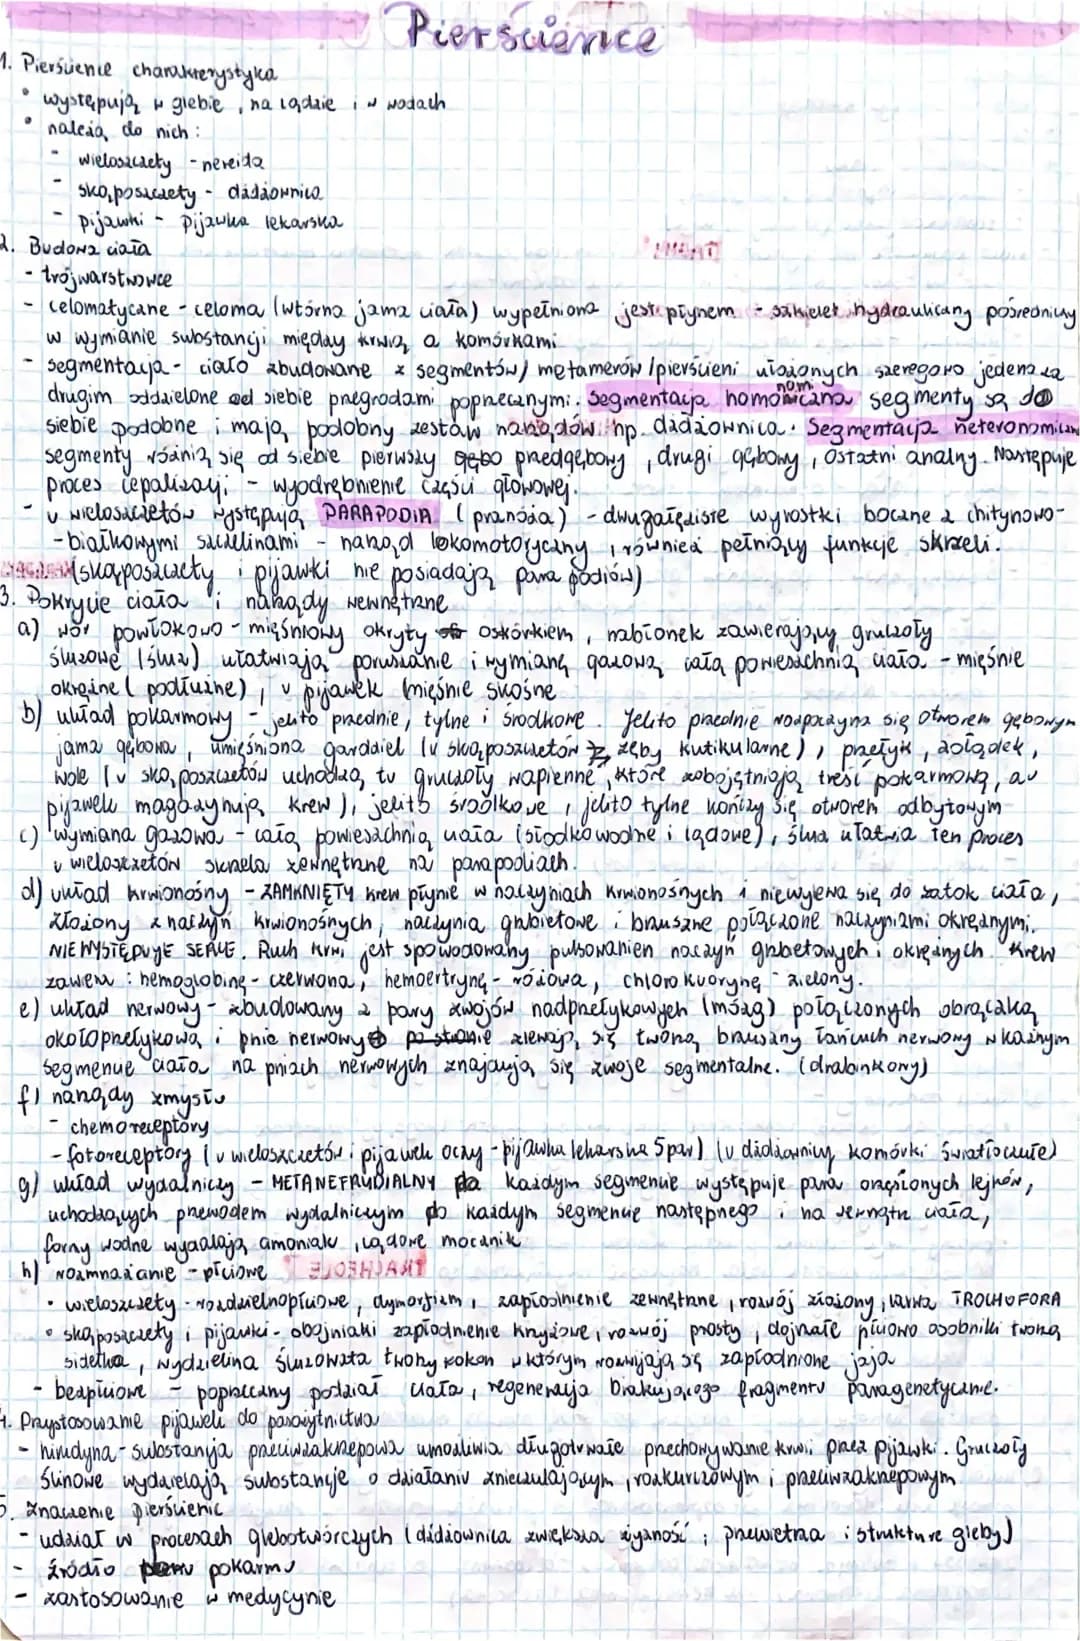 Pierścienice
1. Pierścienie charakterystyka
• występują w glebie, na lądzie i w wodach
• należą do nich:
- wieloszczety - nereida
- skąposzczety - dżdżownica
- pijawki - pijawka lekarska
2. Budowa ciała
- trójwarstwowce
- celomatyczne - celoma (wtórna jama ciała) wypełniona jest płynem - szkielet hydrauliczny pośredniczy
w wymianie substancji między krwią a komórkami
- segmentacja - ciało zbudowane z segmentów/metamerów/pierścieni ułożonych szeregowo jedena za
drugim oddzielone od siebie przegrodami poprzecznymi. Segmentacja homonomiczna segmenty są do
siebie podobne i mają podobny zestaw narządów np. dżdżownica. Segmentacja heteronomiczna
segmenty różnią się od siebie pierwszy przedgębowy, drugi gębowy, ostatni analny. Następuje
proces cepalizacji - wyodrębnienie części głowowej.
- u wieloszczetów występują PARAPODIA (pranóża) - dwugałęziste wyrostki boczne z chitynowo-
-białkowymi szczecinami - narząd lokomotoryczny, również pełniący funkcję skrzeli.
(skąposzczety i pijawki nie posiadają parapodiów)
3. Pokrycie ciała i narządy wewnętrzne
a) wór powłokowo - mięśniowy okryty oskórkiem, nabłonek zawierający gruczoły
śluzowe (śluz) ułatwiają poruszanie i wymianę gazową całą powierzchnią ciała - mięśnie
okrężne (podłużne), u pijawek mięśnie skośne
b) układ pokarmowy - jelito przednie, tylne i środkowe. Jelito przednie rozpoczyna się otworem gębowym
jama gębowa, umięśniona gardziel (u skąposzczetów zęby kutikularne), przełyk, żołądek,
wole (u skąposzczetów uchodzą tu gruczoły wapienne, które zobojętniają treść pokarmową, a u
pijawek magazynują krew), jelito środkowe, jelito tylne kończy się otworem odbytowym
c) wymiana gazowa - całą powierzchnią ciała (słodkowodne i lądowe), śluz ułatwia ten proces
u wieloszczetów skrzela zewnętrzne na parapodiach.
d) układ krwionośny - ZAMKNIĘTY krew płynie w naczyniach krwionośnych i niewylewa się do zatok ciała,
złożony z naczyń krwionośnych, naczynia grzbietowe i brzuszne połączone naczyniami okrężnymi.
NIE WYSTĘPUJE SERCE. Ruch krwi jest spowodowany pulsowaniem naczyń grzbietowych i okrężnych. Krew
zawiera: hemoglobinę - czerwona, hemoertrynę - różowa, chlorokuorynę - zielony.
e) układ nerwowy - zbudowany z pary zwojów nadprzełykowych (mózg) połączonych obrączką
okołoprzełykową i pnie nerwowy po stronie zlewają się tworzą brzuszny łańcuch nerwowy w każnym
segmencie ciała na pniach nerwowych znajdują się zwoje segmentalne. (drabinkowy)
f) narządy zmysłu
- chemoreceptory
- fotoreceptory (u wieloszczetów i pijawek oczy - pijawka lekarska 5 par) (u dżdżownicy komórki światłoczułe)
g) układ wydalniczy - METANEFRYDIALNY Na każdym segmencie występuje para orzęsionych lejków,
uchodzących przewodem wydalniczym do każdym segmencie następnego i na zewnątrz ciała,
formy wodne wydalają amoniak, lądowe mocznik
h) rozmnażanie - płciowe
• wieloszczety - rozdzielnopłciowe, dymorfizm, zapłodnienie zewnętrzne, rozwój złożony, larwa TROCHOFORA
• skąposzczety i pijawki - obojniaki zapłodnienie krzyżowe, rozwój prosty, dojrzałe płciowo osobniki tworzą
siodełka, wydzielina śluzowata tworzy kokon w którym rozwijają są zapłodnione jaja
- bezpłciowe - poprzeczny podział ciała, regeneracja brakującego fragmentu paragenetycznie.
4. Przystosowanie pijawek do pasożytnictwa
- hirudyna - substancja przeciwzakrzepowa umożliwia długotrwałe przechowywanie krwi przez pijawki. Gruczoły
ślinowe wydzielają substancje o działaniu znieczulającym, rozkurczowym i przeciwzakrzepowym
5. Znaczenie pierścienic
- udział w procesach glebotwórczych (dżdżownica zwiększa żyzność i przewietrza i strukturę gleby)
- źródło pokarmu
- zastosowanie w medycynie